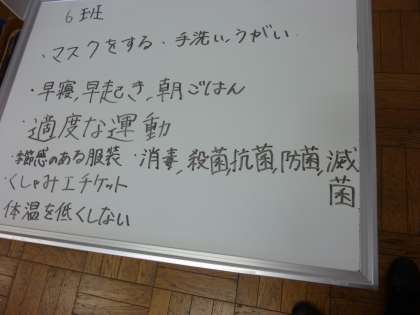 6班
・マスクをする・手洗い,うがい
・早寝,早起き,朝ごはん
・適度な運動
・季節感のある服装・消毒,殺菌,抗菌,防菌,滅菌
・くしゃみエチケット
体温を低くしない